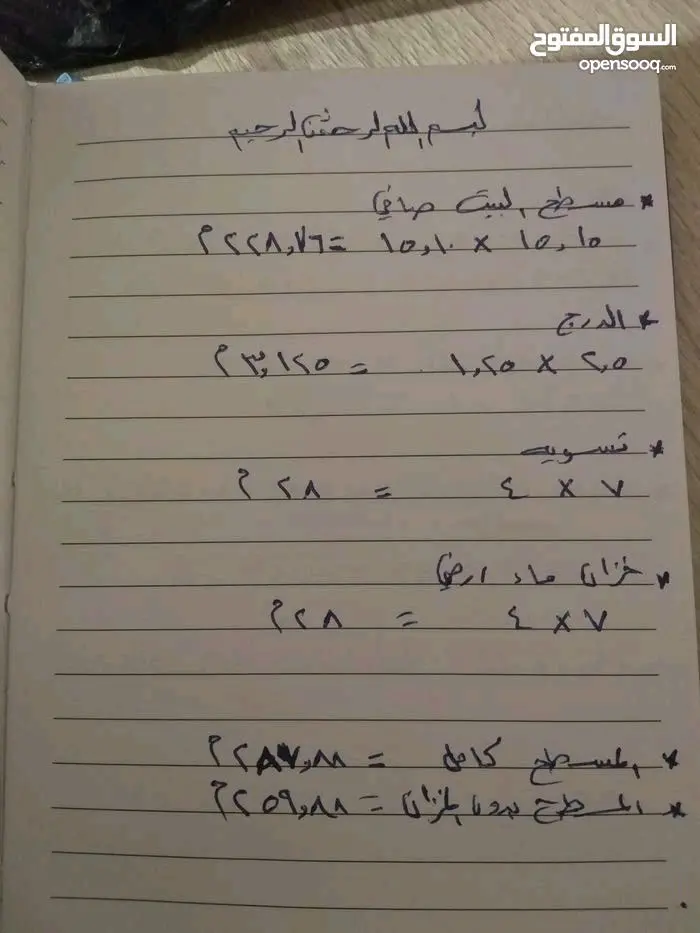 السوق المفتوح
opensooq.com
بسم الله الرحمن الرحيم
* مسطح البيت صافي
١٥,١٥ × ١٥,١٠ = ٢٢٨,٧٦ م٢
* الدرج
٢,٥ × ١,٢٥ = ٣,١٢٥ م٢
* تسويه
٧ × ٤ = ٢٨ م٢
* خزان ماء ارضي
٧ × ٤ = ٢٨ م٢
* المسطح كامل = ٢٨٧,٨٨ م٢
* المسطح بدون الخزان = ٢٥٩,٨٨ م٢